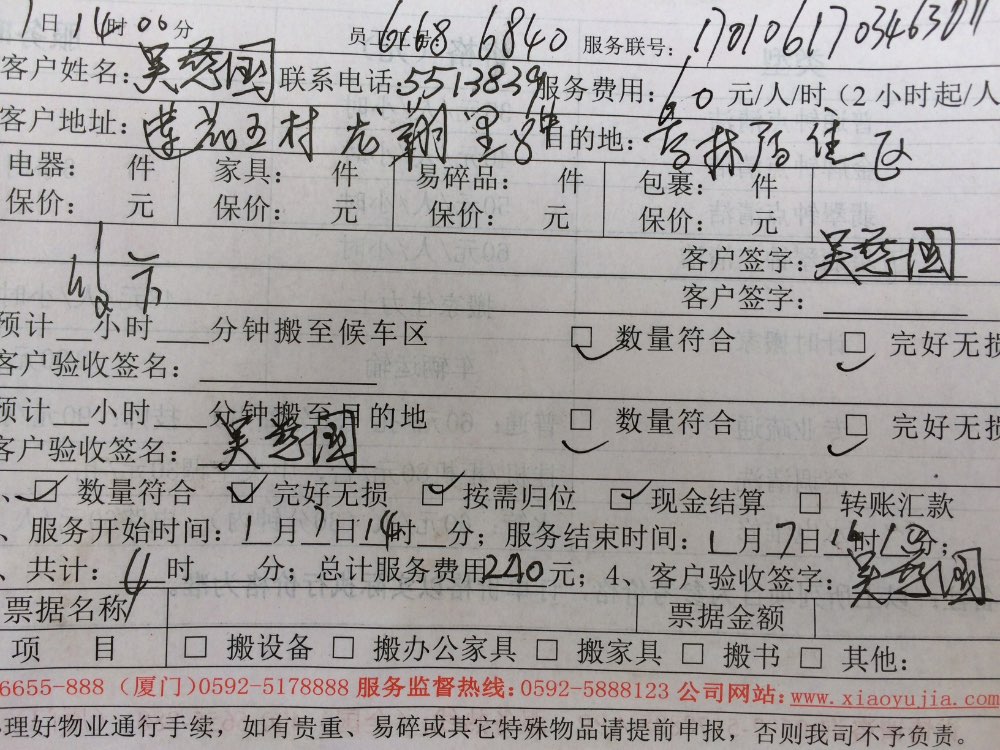 日14时00分 员工工号:668 6840 服务联号:
客户姓名: 联系电话:5513839 服务费用:60元/人/时(2小时起/人
客户地址: 目的地:
电器: 件 家具: 件 易碎品: 件 包裹: 件
保价: 元 保价: 元 保价: 元 保价: 元
客户签字:
客户签字:
预计__小时___分钟搬至候车区 □ 数量符合 □ 完好无损
客户验收签名:
预计__小时___分钟搬至目的地 □ 数量符合 □ 完好无损
客户验收签名:
、☑ 数量符合 ☑ 完好无损 ☑ 按需归位 ☑ 现金结算 □ 转账汇款
、服务开始时间:1月7日14时__分;服务结束时间:1月7日 时 分;
、共计:4时 分;总计服务费用240元;4、客户验收签字:
票据名称 票据金额
项 目 □ 搬设备 □ 搬办公家具 □ 搬家具 □ 搬书 □ 其他:
6655-888 (厦门)0592-5178888 服务监督热线:0592-5888123 公司网站:www.xiaoyujia.com
理好物业通行手续,如有贵重、易碎或其它特殊物品请提前申报,否则我司不予负责。